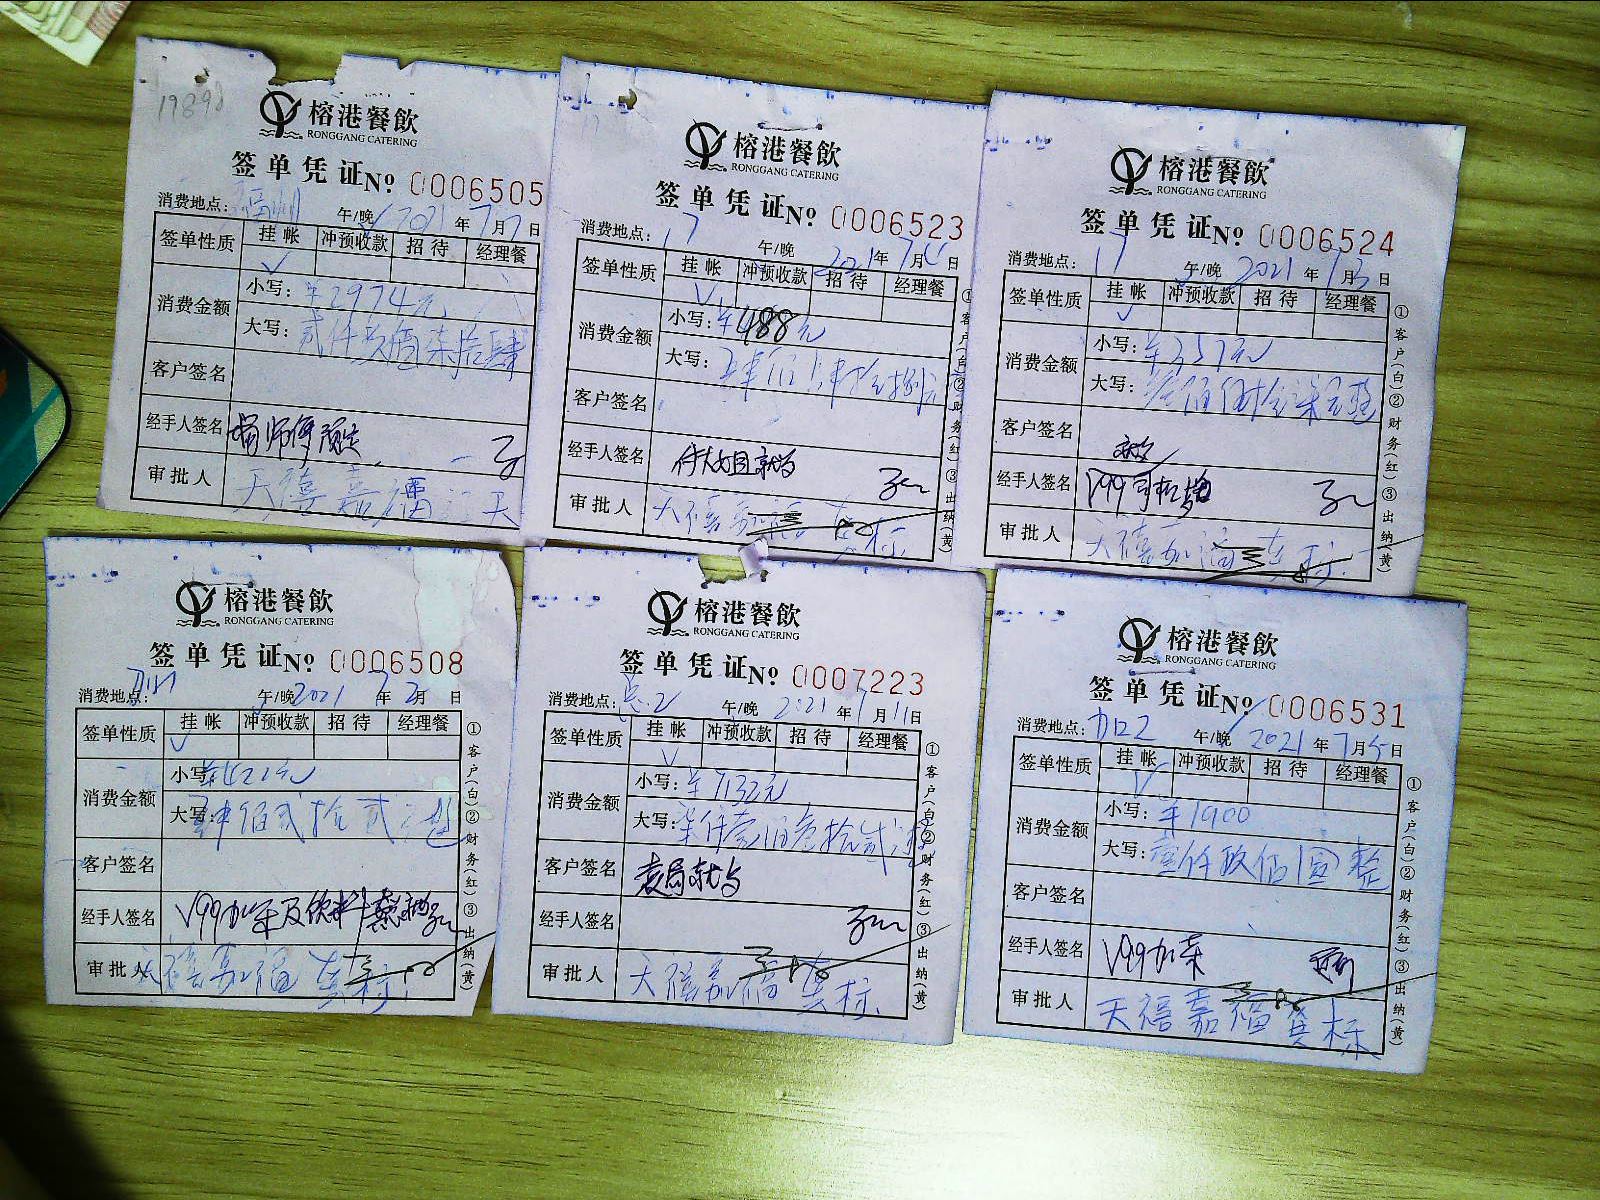 榕港餐飲
RONGGANG CATERING
签单凭证 № 0006505
消费地点：福州 午/晚 2021年7月7日
签单性质 挂帐 冲预收款 招待 经理餐
✓
消费金额 小写：¥2974元
大写：贰仟玖佰柒拾肆
客户签名
经手人签名
审批人 天禧嘉福
榕港餐飲
RONGGANG CATERING
签单凭证 № 0006523
消费地点：17 午/晚 2021年7月 日
签单性质 挂帐 冲预收款 招待 经理餐
✓
消费金额 小写：¥488元
大写：肆佰捌拾捌元
客户签名
经手人签名
审批人 天禧嘉福
①客户(白)②财务(红)③出纳(黄)
榕港餐飲
RONGGANG CATERING
签单凭证 № 0006524
消费地点：17 午/晚 2021年 月3日
签单性质 挂帐 冲预收款 招待 经理餐
✓
消费金额 小写：¥357元
大写：叁佰伍拾柒元整
客户签名
经手人签名
审批人 天禧加福
①客户(白)②财务(红)③出纳(黄)
榕港餐飲
RONGGANG CATERING
签单凭证 № 0006508
消费地点： 午/晚 2021年 月 日
签单性质 挂帐 冲预收款 招待 经理餐
✓
消费金额 小写：
大写：肆佰贰拾贰元整
客户签名
经手人签名 V99加菜及饮料
审批人 天禧嘉福
①客户(白)②财务(红)③出纳(黄)
榕港餐飲
RONGGANG CATERING
签单凭证 № 0007223
消费地点： 午/晚 2021年7月11日
签单性质 挂帐 冲预收款 招待 经理餐
✓
消费金额 小写：¥7132元
大写：柒仟壹佰叁拾贰元
客户签名 袁局就与
经手人签名
审批人 天禧嘉福
①客户(白)②财务(红)③出纳(黄)
榕港餐飲
RONGGANG CATERING
签单凭证 № 0006531
消费地点： 午/晚 2021年7月5日
签单性质 挂帐 冲预收款 招待 经理餐
✓
消费金额 小写：¥1900
大写：壹仟玖佰圆整
客户签名
经手人签名 V99加菜
审批人 天禧嘉福
①客户(白)②财务(红)③出纳(黄)